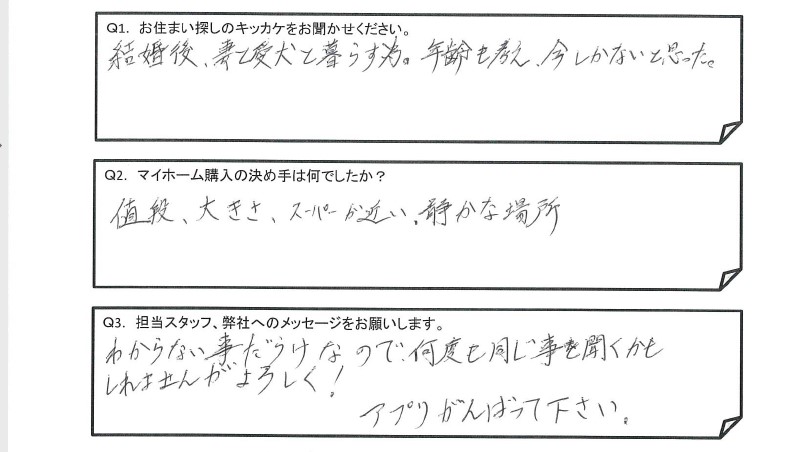 Q1. お住まい探しのキッカケをお聞かせください。
結婚後、妻と愛犬と暮らす為。年齢も考え、今しかないと思った。
Q2. マイホーム購入の決め手は何でしたか？
値段、大きさ、スーパーが近い、静かな場所
Q3. 担当スタッフ、弊社へのメッセージをお願いします。
わからない事だらけなので、何度も同じ事を聞くかも
しれませんがよろしく！
アプリがんばって下さい。